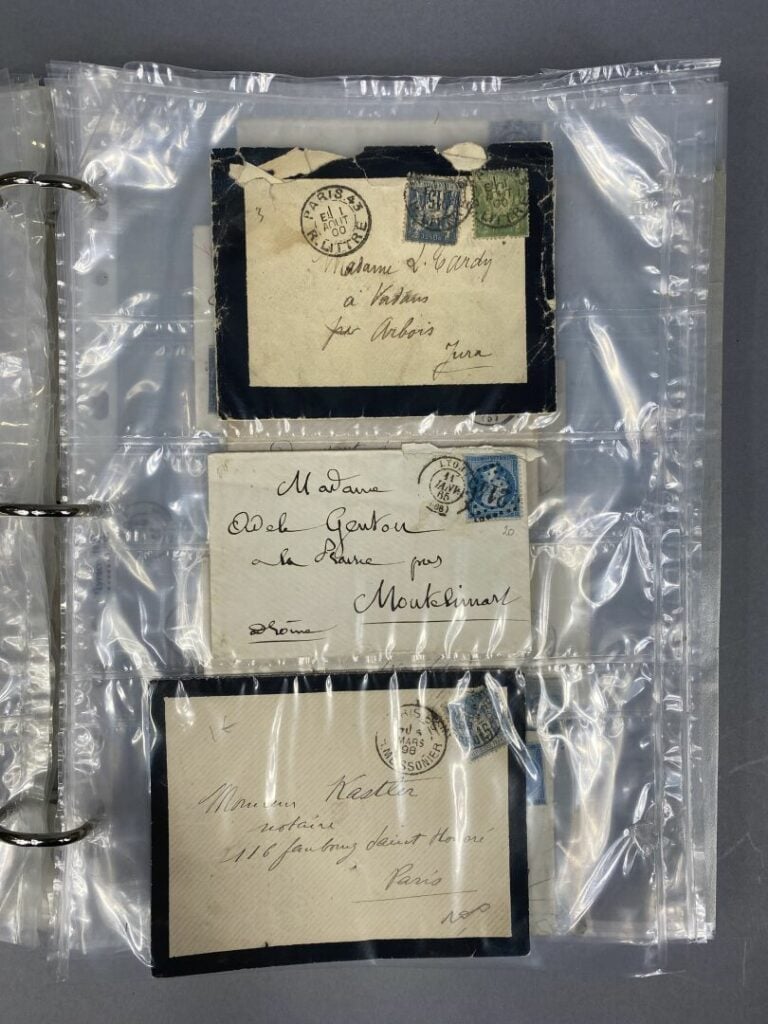 3
PARIS 43
E1 1
AOUT
00
R. LITTRE
15
Madame L. Cardy
à Vadans
par Arbois
Jura
LYO
11
JANV
65
(68)
20
Madame
Genton
à la près
Montélimart
Drôme
1 f
MARS
98
R. MEISSONIER
15
Monsieur Kastler
notaire
116 faubourg Saint Honoré
Paris